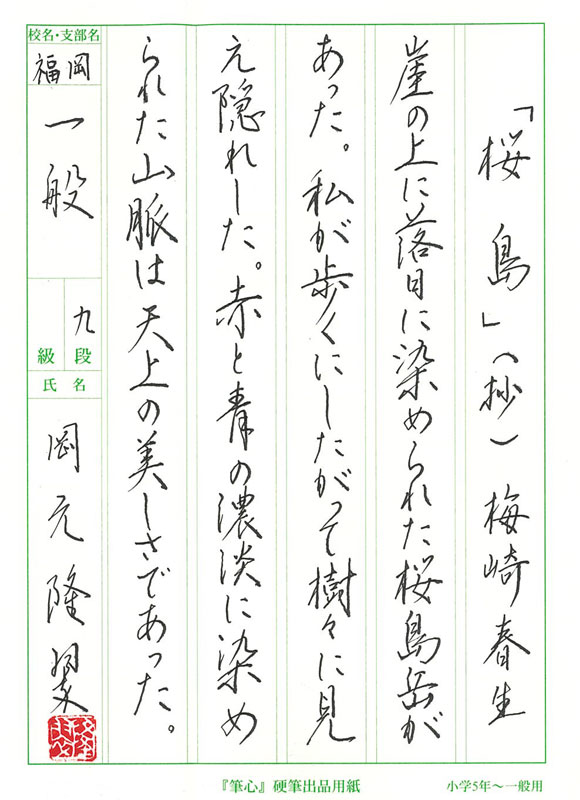 「桜島」(抄) 梅崎春生
崖の上に落日に染められた桜島岳が
あった。私が歩くにしたがって樹々に見
え隠れした。赤と青の濃淡に染め
られた山脈は天上の美しさであった。
校名・支部名
福岡
一般
九段
級
氏名
岡元隆翠
『筆心』硬筆出品用紙
小学5年~一般用